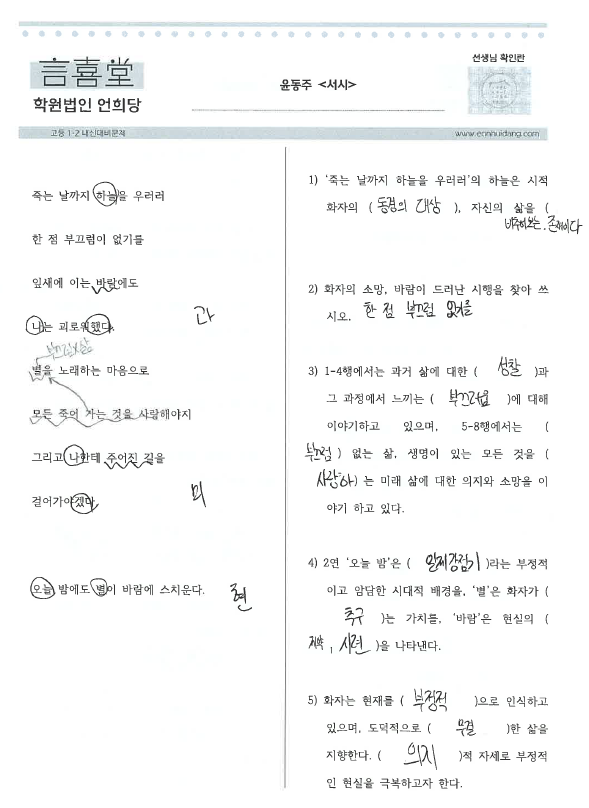 言喜堂
학원법인 언희당
윤동주 <서시>
선생님 확인란
고등 1-2 내신대비문제
www.eonhuidang.com
죽는 날까지 하늘을 우러러
한 점 부끄럼이 없기를
잎새에 이는 바람에도
나는 괴로워했다.
과
별을 노래하는 마음으로
모든 죽어 가는 것을 사랑해야지
그리고 나한테 주어진 길을
걸어가야겠다.
미
오늘 밤에도 별이 바람에 스치운다.
현
1) ‘죽는 날까지 하늘을 우러러’의 하늘은 시적
화자의 ( 동경의 대상 ), 자신의 삶을 (
비추어보는 존재이다
2) 화자의 소망, 바람이 드러난 시행을 찾아 쓰
시오. 한 점 부끄럼 없기를
3) 1-4행에서는 과거 삶에 대한 ( 성찰 )과
그 과정에서 느끼는 ( 부끄러움 )에 대해
이야기하고 있으며, 5-8행에서는 (
부끄럼 ) 없는 삶, 생명이 있는 모든 것을 (
사랑하 ) 는 미래 삶에 대한 의지와 소망을 이
야기 하고 있다.
4) 2연 ‘오늘 밤’은 ( 일제강점기 )라는 부정적
이고 암담한 시대적 배경을, ‘별’은 화자가 (
추구 )는 가치를, ‘바람’은 현실의 (
시련 )을 나타낸다.
5) 화자는 현재를 ( 부정적 )으로 인식하고
있으며, 도덕적으로 ( 무결 )한 삶을
지향한다. ( 의지 )적 자세로 부정적
인 현실을 극복하고자 한다.